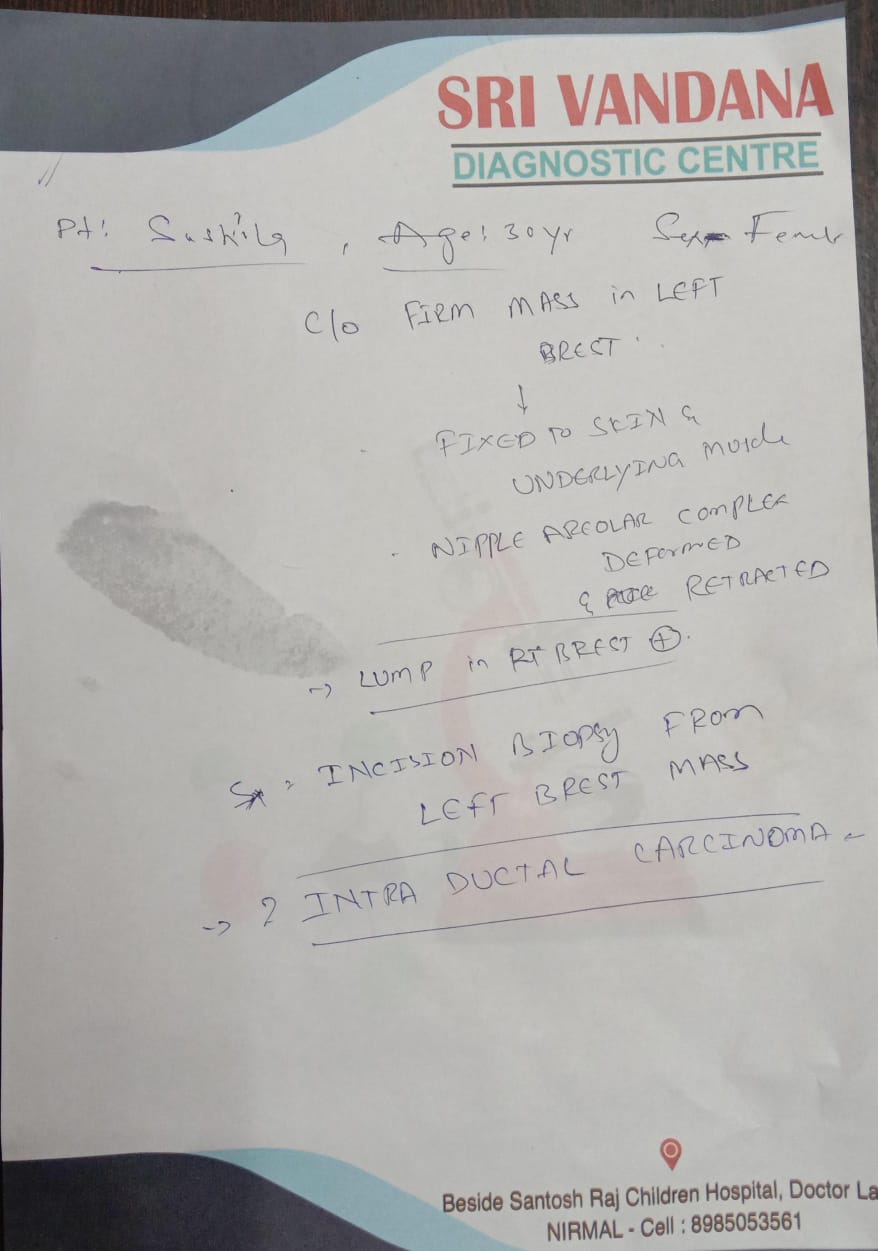 SRI VANDANA
DIAGNOSTIC CENTRE
Pt: Sushila, Age: 30 yr Sex Female
C/o FIRM MASS in LEFT
BREST
↓
FIXED TO SKIN &
UNDERLYING muscle
NIPPLE AREOLAR COMPLEX
DEFORMED
& RETRACTED
→ LUMP in RT BREST ⊕.
INCISION BIOPSY FROM
LEFT BREST MASS
→ ? INTRA DUCTAL CARCINOMA
Beside Santosh Raj Children Hospital, Doctor La
NIRMAL - Cell : 8985053561